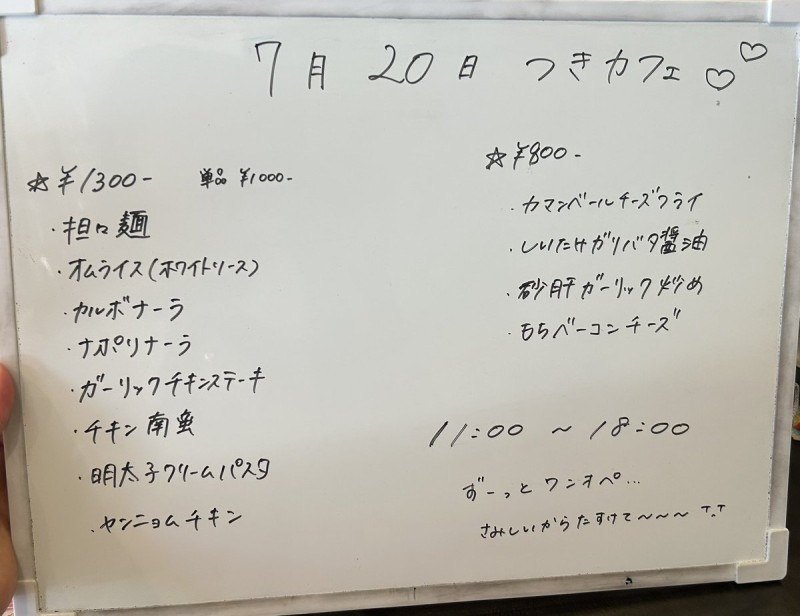 7月 20日 つきカフェ♡♡
☆¥1300- 単品 ¥1000-
・担々麺
・オムライス(ホワイトソース)
・カルボナーラ
・ナポリナーラ
・ガーリックチキンステーキ
・チキン南蛮
・明太子クリームパスタ
・ヤンニョムチキン
☆¥800-
・カマンベールチーズフライ
・しいたけガリバタ醤油
・砂肝ガーリック炒め
・もちベーコンチーズ
11:00 ~ 18:00
ずーっと ワンオペ...
さみしいからたすけて~~~ T.T